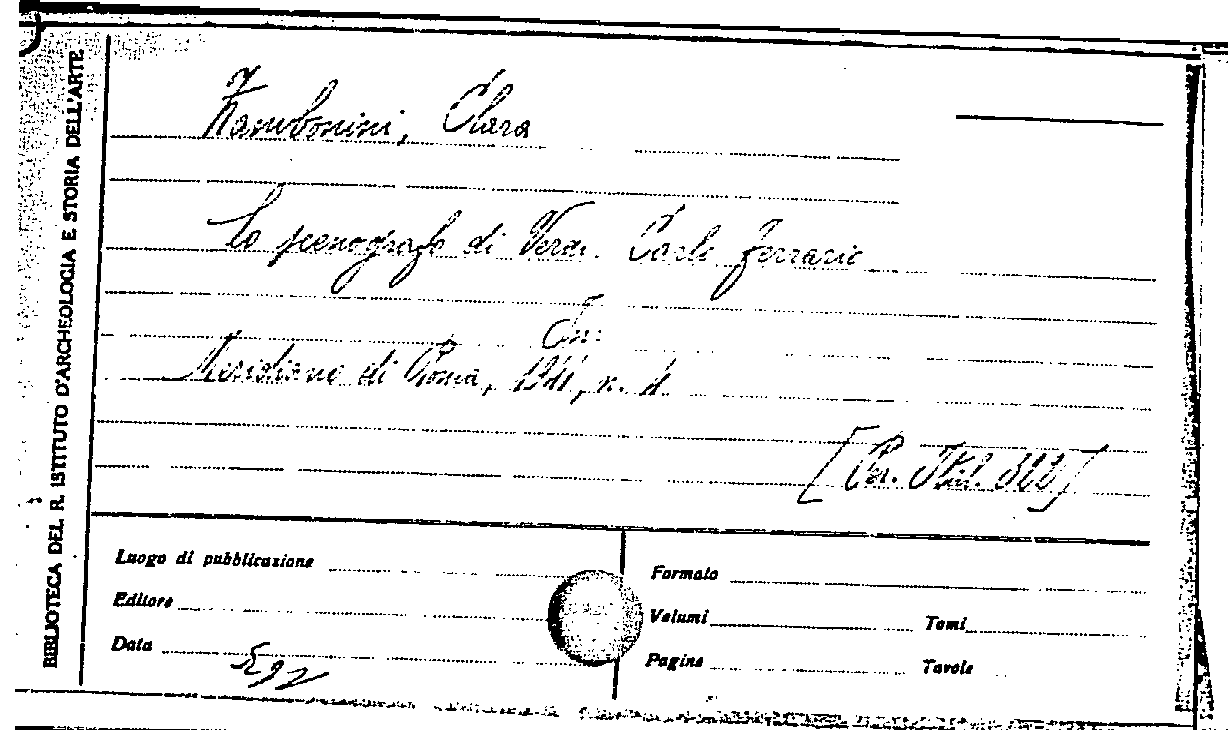 BIBLIOTECA DEL R. ISTITUTO D'ARCHEOLOGIA E STORIA DELL'ARTE
Zambonini, Clara
Lo scenografo di Verdi. Carlo Ferrario
In:
Meridiano di Roma, 1941, n. 4.
[Per. Ital.
Luogo di pubblicazione
Formato
Editore
Volumi
Tomi
Data
Pagine
Tavole